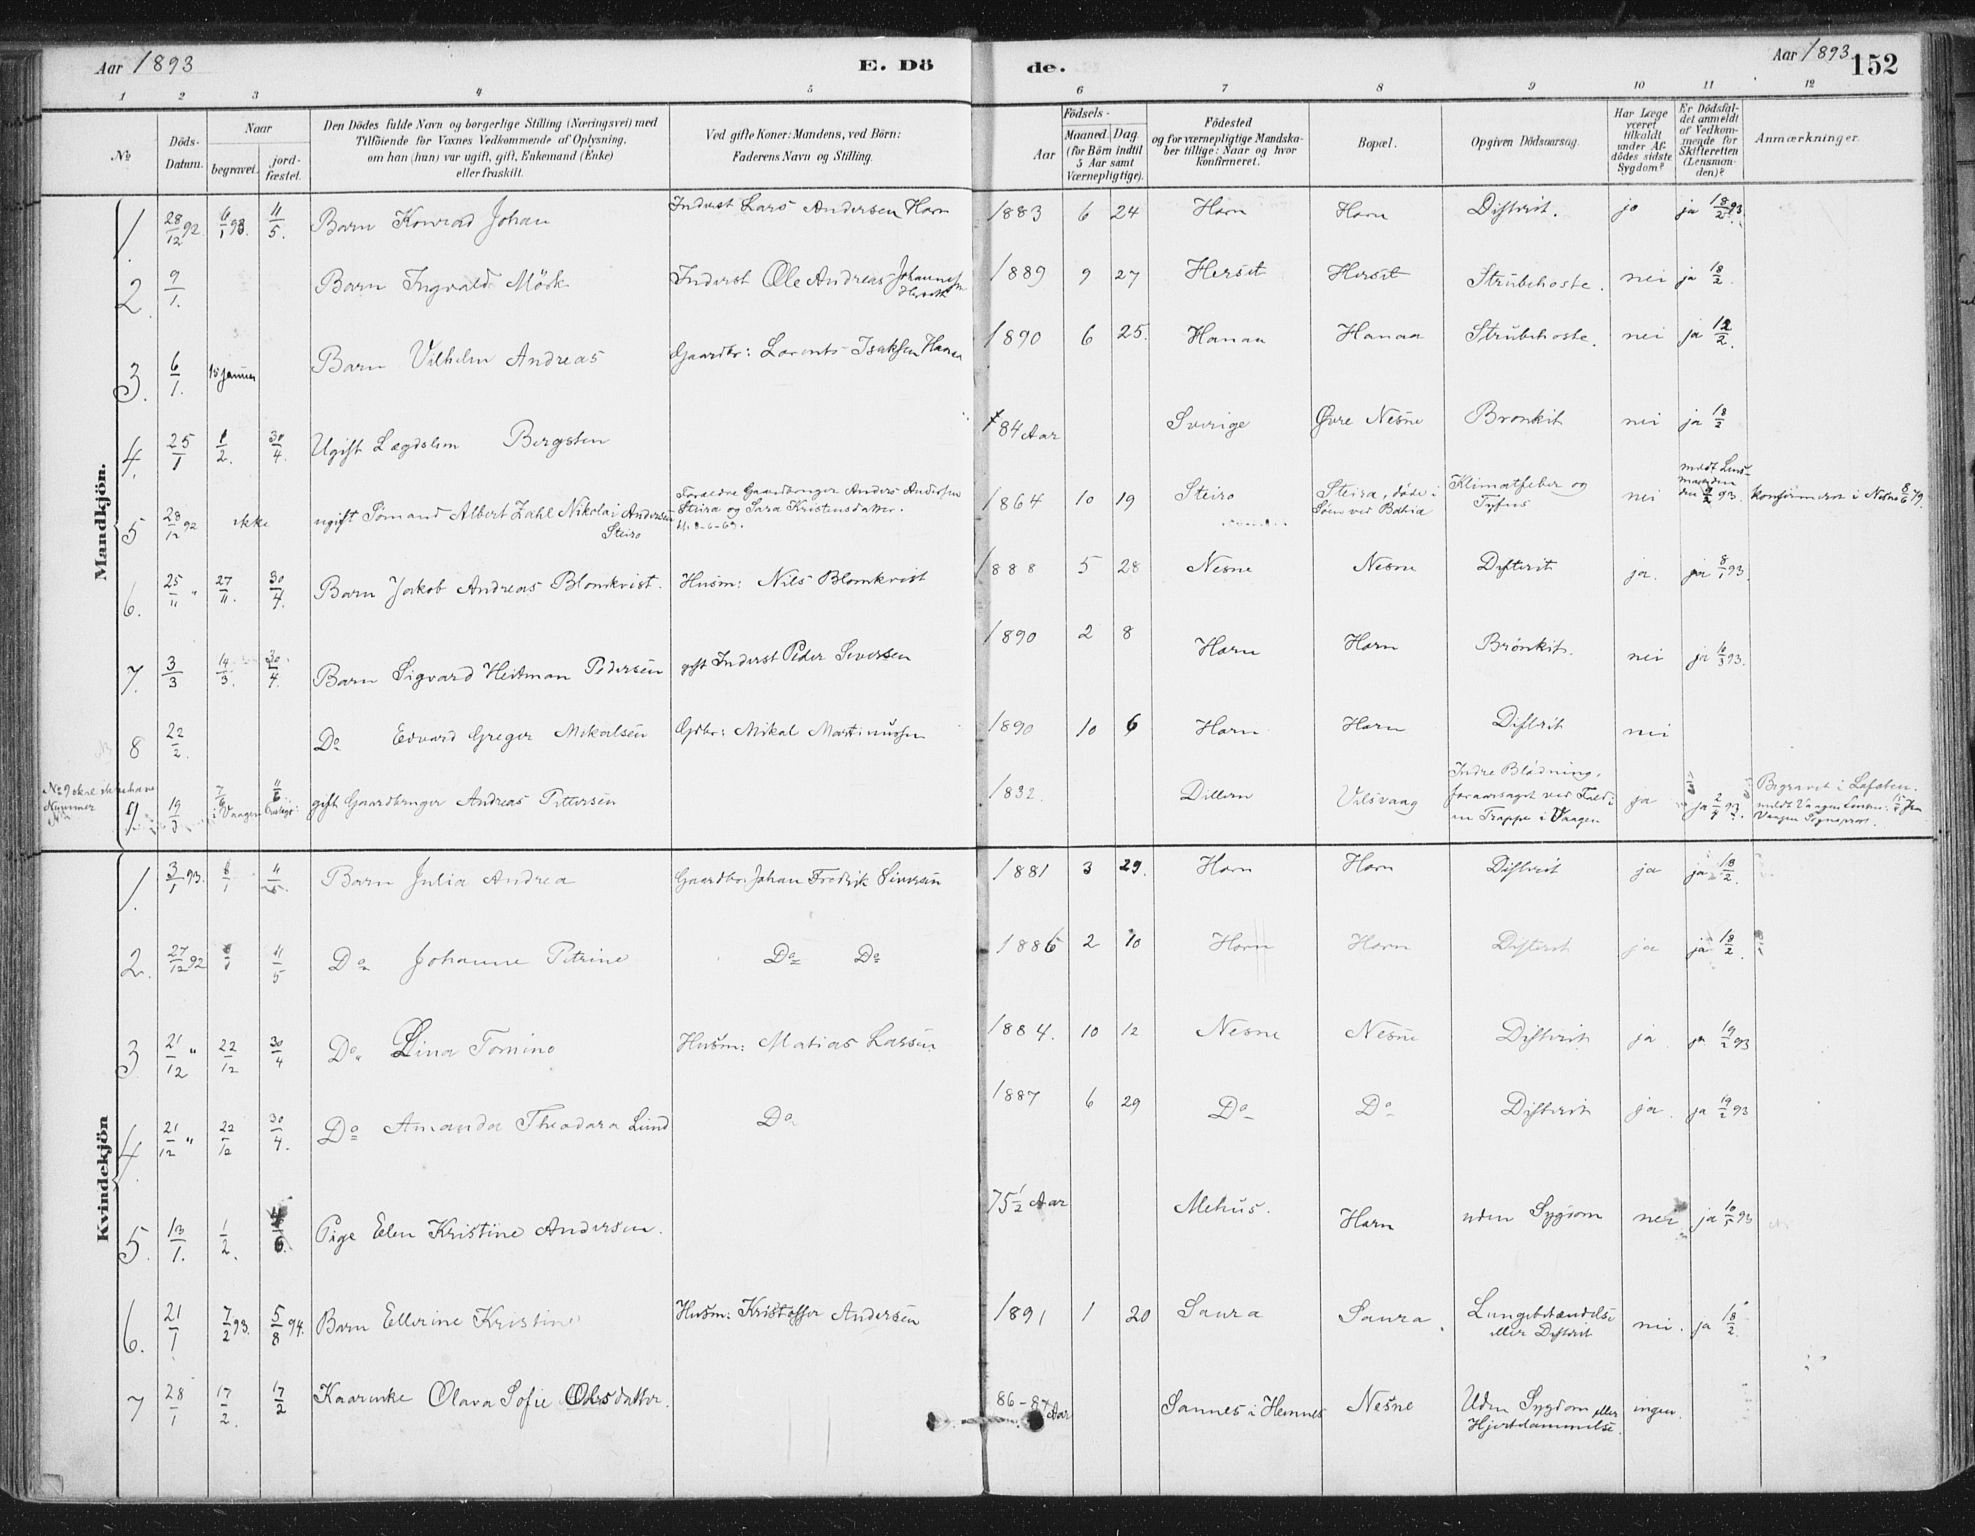 Aar 1893 E. Dö de. Aar 1893. 152
1 2 3 4 5 6 7 8 9 10 11 12
No Döds-Datum. Naar begravet. jord-fæstet. Den Dödes fulde Navn og borgerlige Stilling (Næringsvei) med Tilföiende for Voxnes Vedkommende af Oplysning, om han (hun) var ugift, gift, Enkemand (Enke) eller fraskilt. Ved gifte Koner: Mandens, ved Börn: Faderens Navn og Stilling. Födsels- Aar Maaned. Dag (for Börn indtil 5 Aar samt Værnepligtige). Födested og for værnepligtige Mandska-ber tillige: Naar og hvor konfirmeret. Bopæl. Opgiven Dödsaarsag. Har Læge været tilkaldt under Af-dödes sidste Sygdom? Er Dödsfal-det anmeldt af Vedkom-mende for Skifteretten (Lensman-den)? Anmærkninger.
Mandkjön.
1. 28/12 92 6/1 93. 11/5. Barn Konrad Johan Inderst Lars Andersen Horn 1883 6 24 Horn Horn Difterit. ja ja 18/2 93.
2. 9/1. Barn Ingvald Mörk Inderst Ole Andreas Johannesen 1889 9 27 Herset Herset Strubehoste. nei ja 18/2.
3. 6/1. 15 januar Barn Vilhelm Andreas Gaardbr: Lorents Isaksen Hanaa 1890 6 25. Hanaa Hanaa Strubehoste. nei ja 12/2.
4. 25/1 1/2. 30/4. Ugift Lægdslem Bergsten 84 Aar Sverige Øvre Nesne Bronkit nei ja 18/2
5 28/12 92 ikke ugift Sömand Albert Zahl Nikolai Andersen Steiro Forældre Gaardbruger Anders Andersen Steira og Sara Kristensdatter. 1864 10 19 Steiro Steira, döde i Söen ved Bahia Klimatfeber og Tyfus nei meldt Lens-manden den 93. konfirmeret i Nesne 8/6 79.
6. 25/11 " 27/11. 30/4. Barn Jakob Andreas Blomkvist. Husm: Nils Blomkvist 1888 5 28 Nesne Nesne Difterit ja. ja 8/1 93.
7. 3/3 14/3. 30/4. Barn Sigvard Heitman Pedersen gift Inderst Peder Seversen 1890 2 8 Horn Horn Brönkit. nei ja 16/3 93.
8 22/2. Do Edvard Greger Mikalsen Gdbr: Mikal Martinussen 1890 10 6 Horn Horn Difterit nei
No 9 skal ikke have Nummer
9. 19/3 7/6 i Vaagen gift Gaardbruger Andreas Pettersen 1832. Dillern Vilsvaag Indre Blödning, foraarsaget ved Fald i en Trappe i Vaagen ja ja 2/4 93. Begravet i Lofoten.
Kvindekjön
1. 3/1 93. 8/1 11/5. Barn Julia Andrea Gaardbr. Johan Fredrik Siversen 1881 3 29. Horn Horn Difterit ja ja 18/2.
2. 27/12 92 11/5 Do Johanne Petrine Do Do 1886 2 10 Horn Horn Difterit ja ja 18/2.
3 21/12 " 22/12 30/4 Do. Lina Tomine Husm: Matias Larsen. 1884. 10 12 Nesne Nesne Difterit ja. ja 19/2 93
4. 21/12 " 22/12 30/4. Do Amanda Theodora Lund Do 1887 6 29 Do Do Difterit ja. ja 19/2 93
5. 13/1. 1/2. Pige Elen Kristine Andersen. 75 1/2 Aar Mehus. Horn uden Sygdom nei ja 10/5 93
6. 21/1 7/2 93. 5/8 94. Barn Ellerine Kristine Husm: Kristoffer Andersen 1891 1 20 Saura Saura. Lungebetændelse eller Difterit nei. ja 18/2.
7 28/1 17/2. 17/2 Kaarenke Olava Sofie Olsdatter. 86-87 Aar Sannes i Hemnes Nesne Uden Sygdom eller Hjertelammelse. ingen.